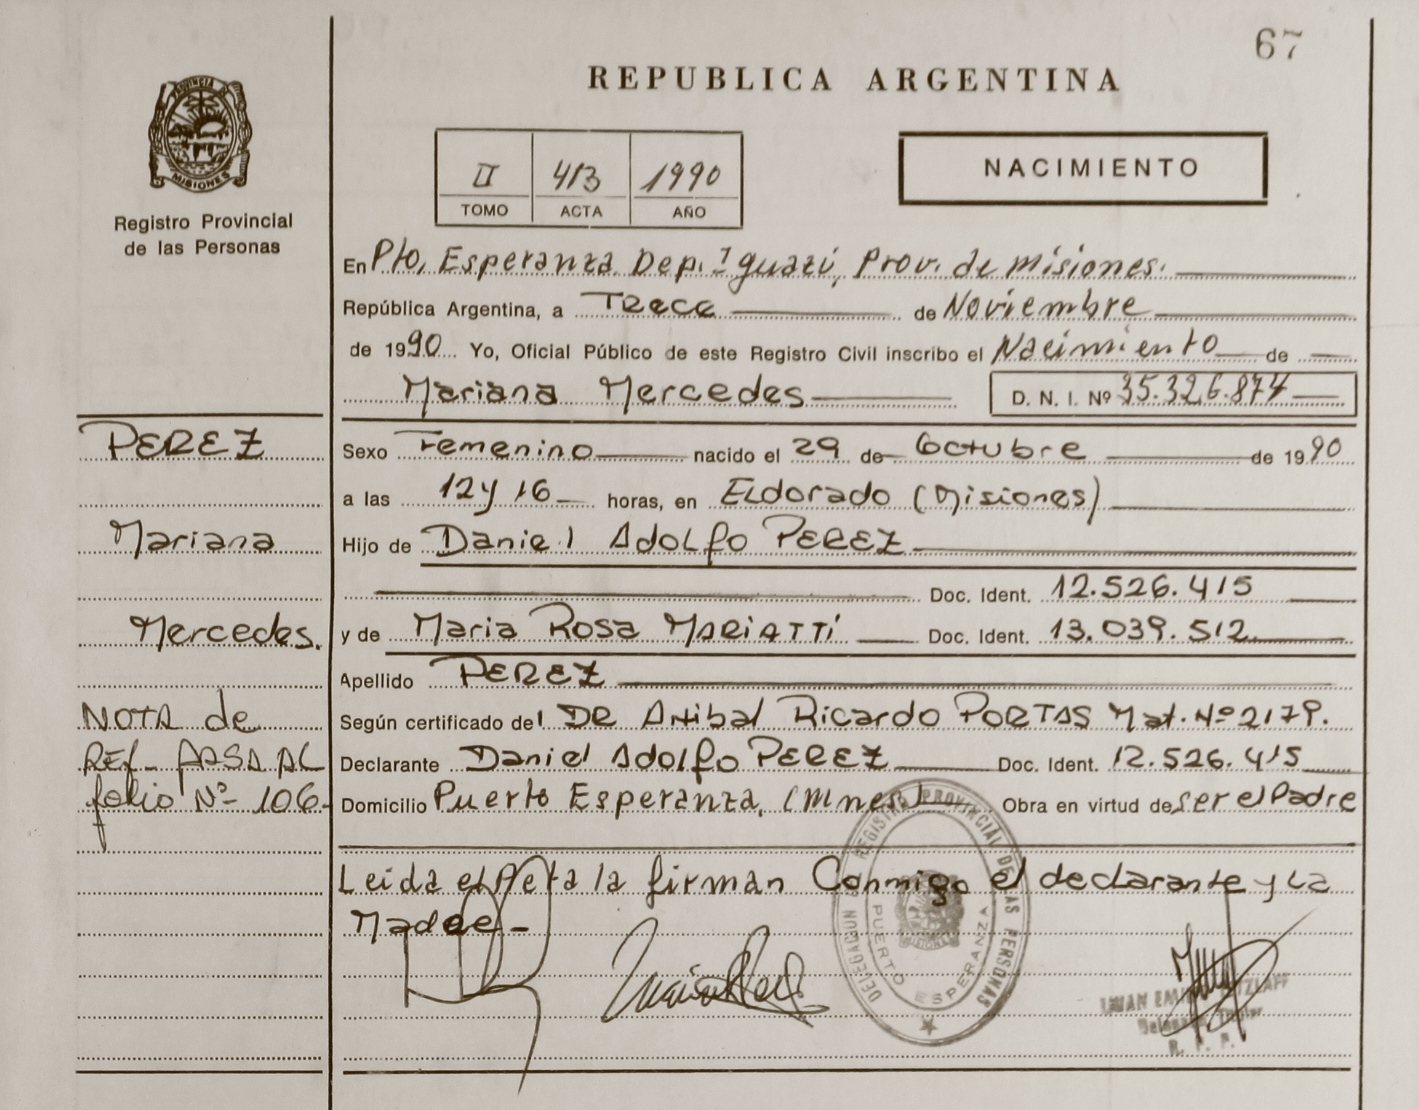 67
REPUBLICA ARGENTINA
PROVINCIA DE MISIONES
Registro Provincial
de las Personas
II 413 1990
TOMO ACTA AÑO
NACIMIENTO
En Pto. Esperanza Dep. Iguazú, Prov. de Misiones.
República Argentina, a Trece de Noviembre
de 1990 Yo, Oficial Público de este Registro Civil inscribo el Nacimiento de
Mariana Mercedes D. N. I. Nº 35.326.874
PEREZ
Mariana
Mercedes.
NOTA de
REf- PASA AL
folio Nº- 106-
Sexo Femenino nacido el 29 de Octubre de 1990
a las 12 y 16 horas, en Eldorado (Misiones)
Hijo de Daniel Adolfo PEREZ
Doc. Ident. 12.526.415
y de Maria Rosa MARIATTI Doc. Ident. 13.039.512
Apellido PEREZ
Según certificado del DR Anibal Ricardo PORTAS Mat. Nº 2179.
Declarante Daniel Adolfo PEREZ Doc. Ident. 12.526.415
Domicilio Puerto Esperanza, (Mnes.) Obra en virtud de ser el Padre
Leida el Acta la firman Conmigo el declarante y La
Madre-
REGISTRO PROVINCIAL DE LAS PERSONAS
DELEGACION
PUERTO ESPERANZA
MISIONES
Titular